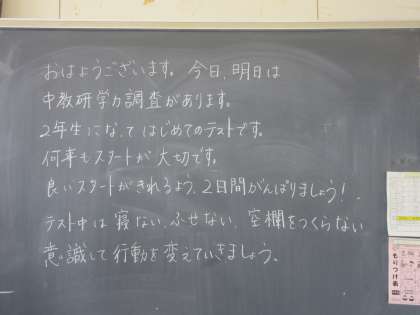 おはようございます。今日、明日は
中教研学力調査があります。
2年生になってはじめてのテストです。
何事もスタートが大切です。
良いスタートがきれるよう、2日間がんばりましょう!
テスト中は寝ない、ふせない、空欄をつくらない
意識して行動を変えていきましょう。
もりつけ表